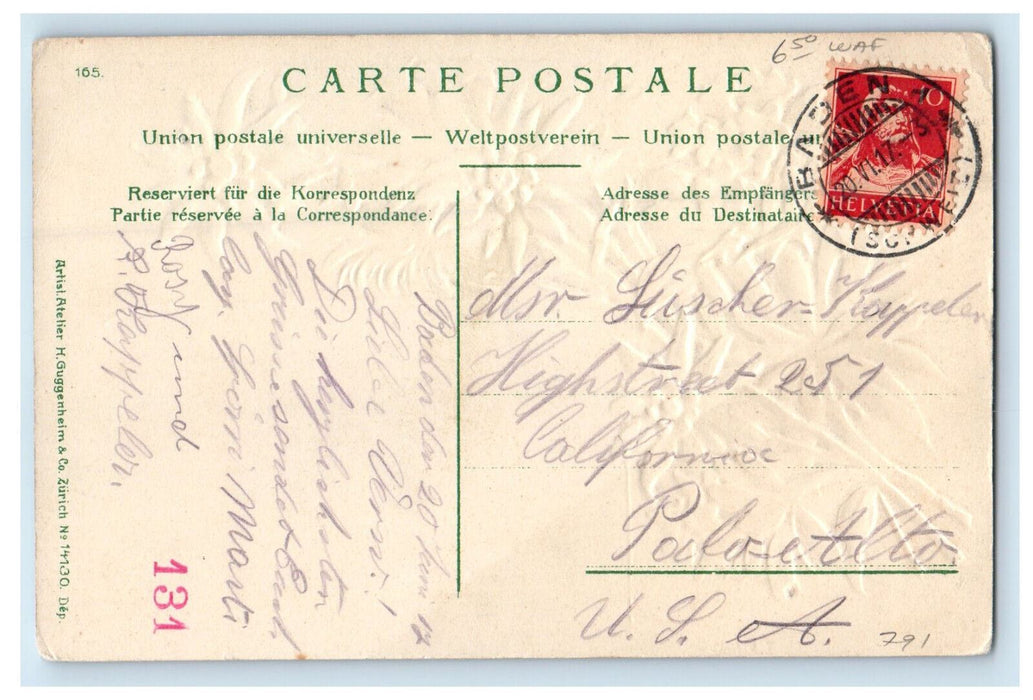 165.
6 50 WAF
CARTE POSTALE
Union postale universelle — Weltpostverein — Union postale
Reserviert für die Korrespondenz
Partie réservée à la Correspondance.
Adresse des Empfängers
Adresse du Destinataire
10
HELVETIA
BADEN
20.VI.17
(SCHWEIZ)
Baden den 20 Juni 17
Liebe
Die herzlichsten
Grüsse sendet Euch
Marti
und
Kappeler.
Msr. Lüscher-Kappeler
Highstreet 251
California
Palo-Alto.
U. S. A.
791
131
Artist. Atelier H. Guggenheim & Co. Zürich No 14130. Dép.